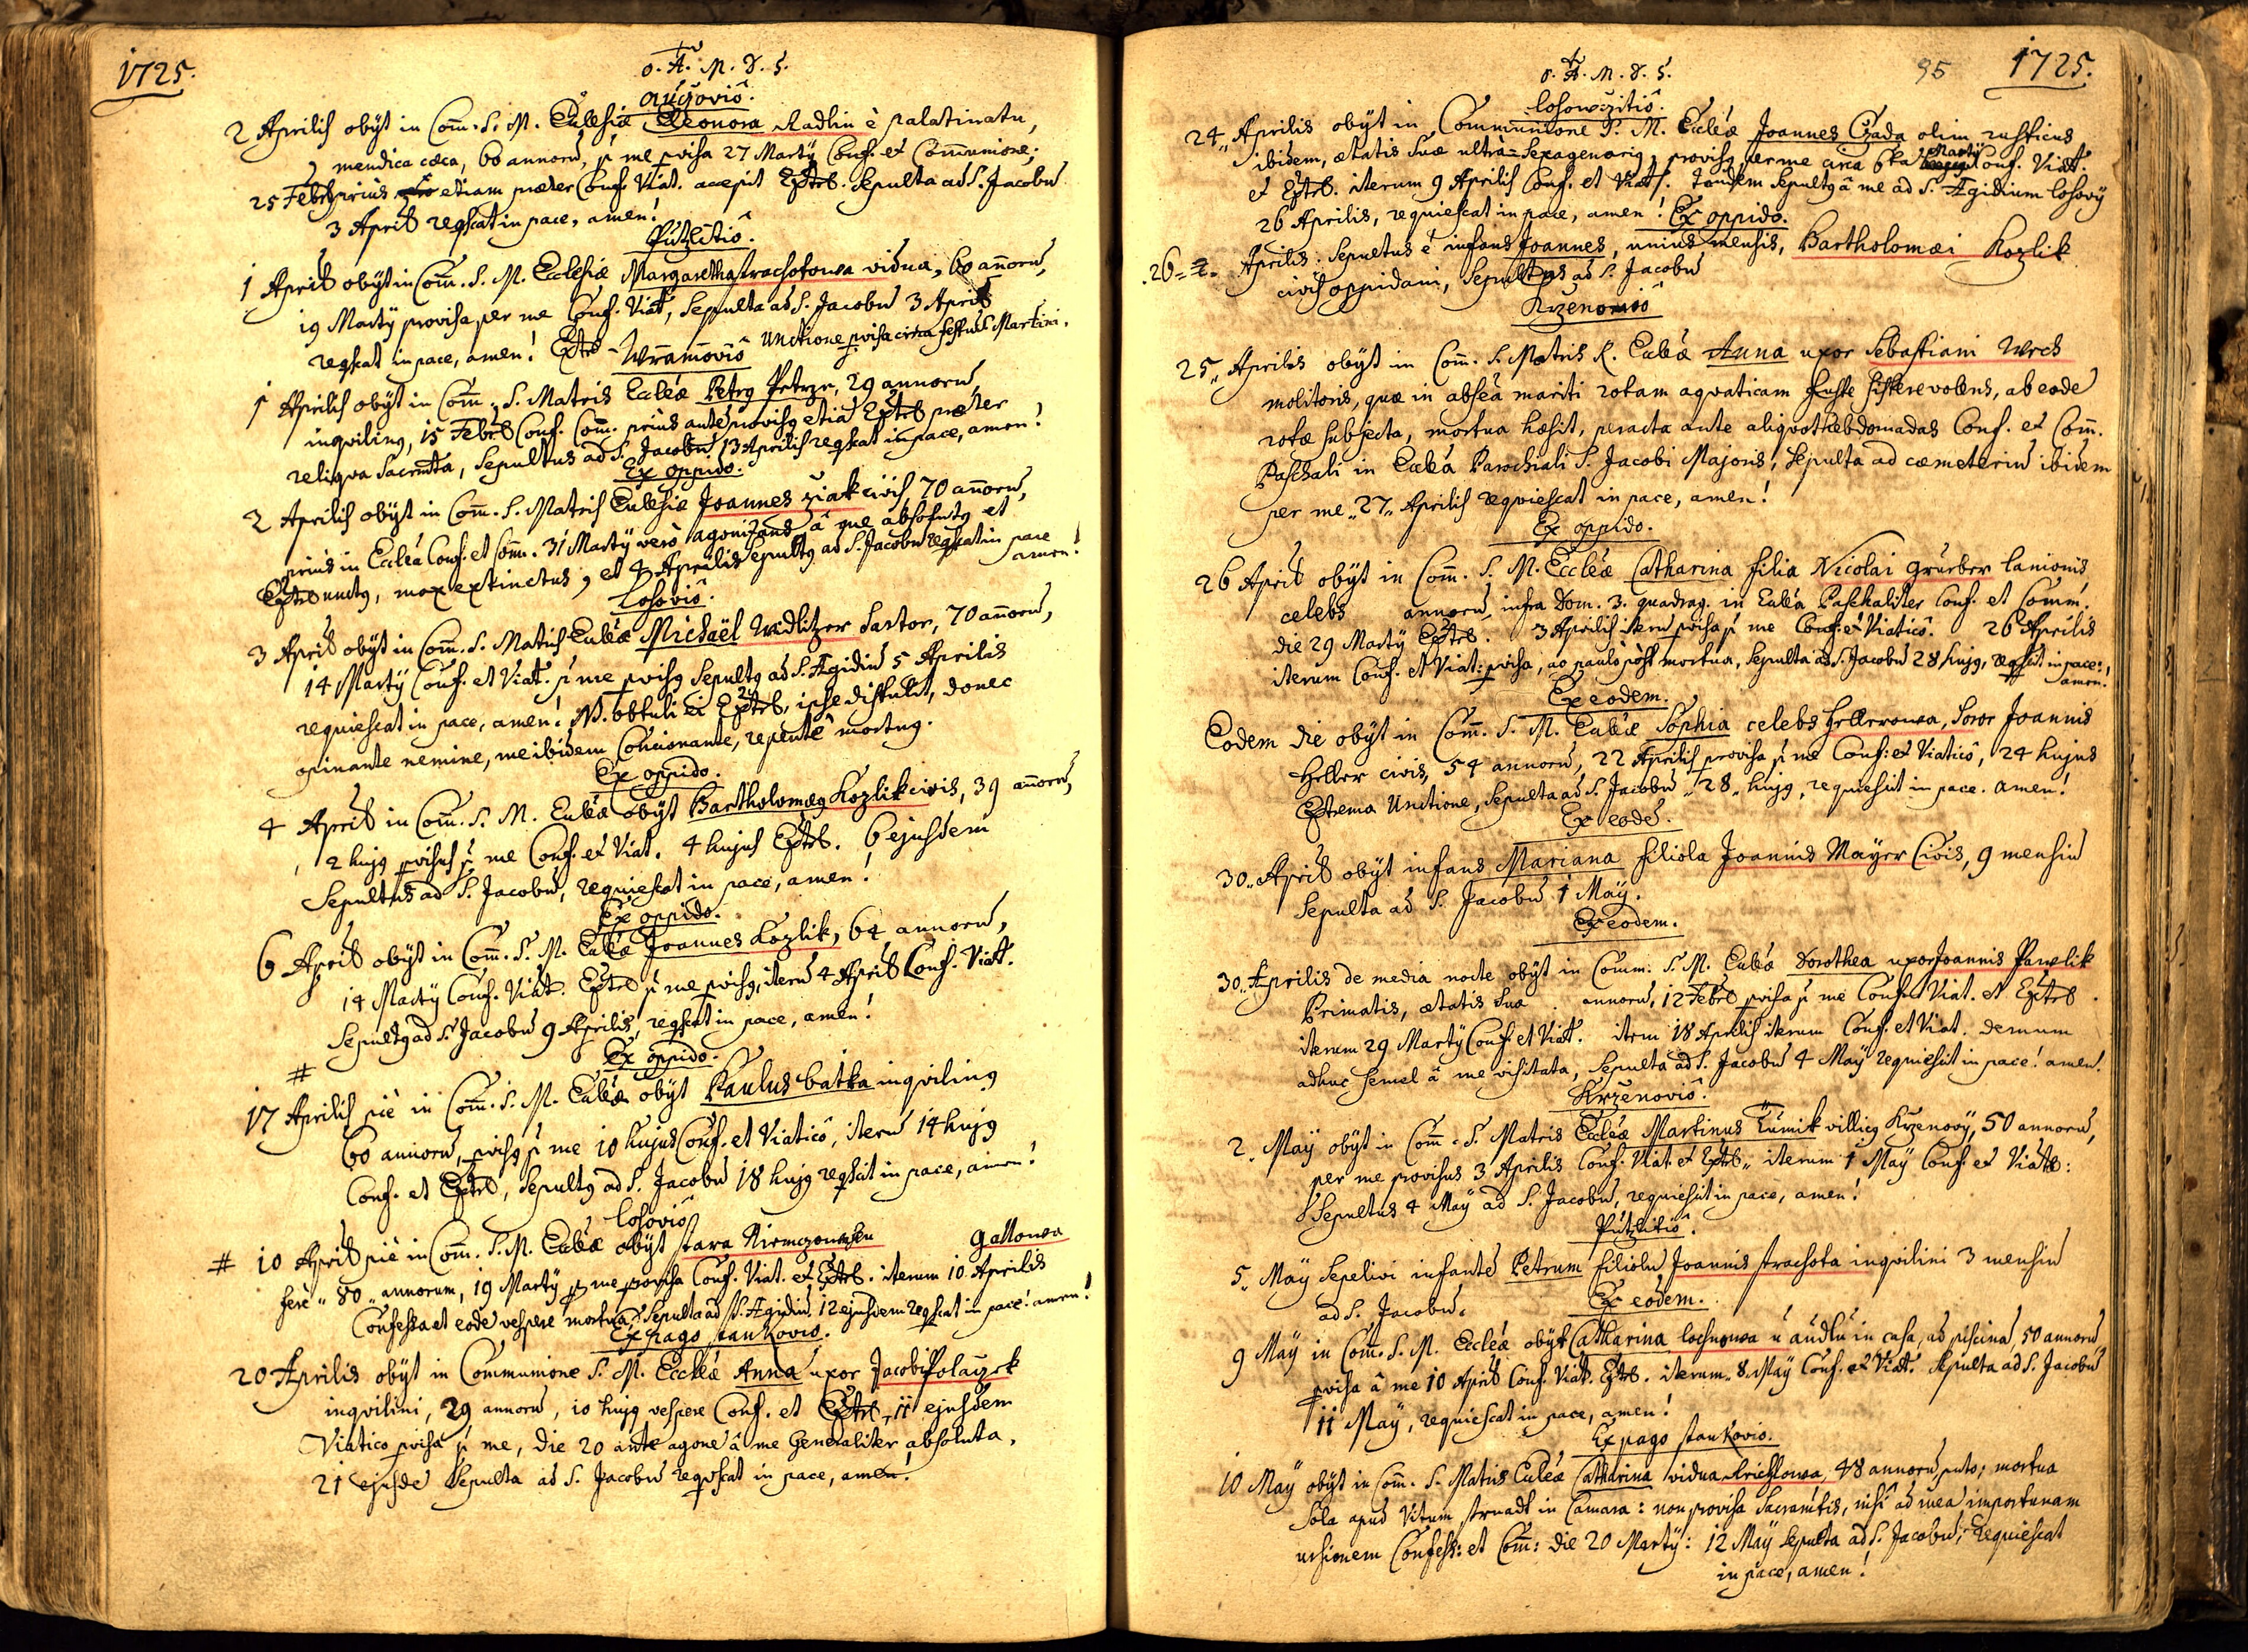 1725.
O. A. M. D. G.
augoviô.
2 Aprilis obÿt in Com̄. S. M. Ecclesiæ Eleonora Radlin è palatinatu,
mendica cæca, 60 annorū, p̱ me p̱visa 27 Martÿ Conf. et Communione;
25 Febr. prius etiam præter Conf. Viat. accepit Extrē. Sepulta ad S. Jacobū
3 April reqscat in pace, amen!
Putzlitio.
1 April obÿt in Com̄. S. M. Ecclesiæ Margaretha strachotowa vidua, 60 an̄orū,
19 Martÿ provisa per me Conf. Viat, Sepulta ad S. Jacobū 3 April
reqscat in pace, amen! Extrē Unctione p̱visa circa festū S. Martini.
Wranoviô
1 Aprilis obÿt in Com̄. S. Matris Eccleæ Petrg Petrzr, 29 annorū,
inqviling, 15 Febr. Conf. Com̄. prius ante provisg etiā Extrē præter
reliqva Sacramta, Sepultus ad S. Jacobū 13 Aprilis reqscat in pace, amen!
Ex oppido.
2 Aprilis obÿt in Com̄. S. Matris Ecclesiæ Joannes ziak civis, 70 an̄orū,
prius in Ecclea Conf. et Com̄. 31 Martÿ verò agonisans â me absolutg et
Extrē unctg, mox extinctus, et 4 Aprilis sepultg ad S. Jacobū reqscat in pace
amen!
losoviô.
3 April obÿt in Com̄. S. Matris Eccleæ Michaël Widlitzer Sartor, 70 an̄orū,
14 Martÿ Conf. et Viat. p̱ me p̱visg Sepultg ad S. Ægidiū 5 Aprilis
requiescat in pace, amen! NB. obtuli ei Extrē, ipse distulit, donec
opinante nemine, me ibidem Concionante, repentè mortug.
Ex oppido.
4 April in Com̄. S. M. Eccleæ obÿt Bartholomæg Kozlik civis, 39 an̄orū,
2 hujg p̱visus p̱ me Conf. et Viat. 4 hujus Extrē. 6 ejusdem
Sepultus ad S. Jacobū, requiescat in pace, amen!
Ex oppido.
6 April obÿt in Com̄. S. M. Eccleæ Joannes Kozlik, 64 annorū,
14 Martÿ Conf. Viat. Extrē p̱ me p̱visg, iterū 4 April Conf. Viat.
Sepultg ad S. Jacobū 9 Aprilis, reqscat in pace, amen!
#
Ex oppido.
17 Aprilis piè in Com̄. S. M. Eccleæ obÿt Paulus batka inqviling
60 annorū, p̱visg p̱ me 10 hujus Conf. et Viaticô, iterū 14 hujg
Conf. et Extrē, Sepultg ad S. Jacobū 18 hujg reqscit in pace, amen!
losoviô
# 10 April piè in Com̄. S. M. Eccleæ obÿt stara gallowa
ferè „ 80 „ annorum, 19 Martÿ p̱ me provisa Conf. Viat. et Extrē. iterum 10 Aprilis
Confessa et eodē vespere mortua, Sepulta ad S. Ægidiū 12 ejusdem reqscat in pace! amen!
Ex pago stankoviô.
20 Aprilis obÿt in Communione S. M. Eccleæ Anna uxor Jacobi Polaczek
inqvilini, 29 annorū, 10 hujg vespere Conf. et Extrē, 11 ejusdem
Viatico p̱visa p̱ me, die 20 ante agonē â me Generaliter absoluta,
21 ejusdē Sepulta ad S. Jacobū reqscat in pace, amen!
O. A. M. D. G.
95
1725.
losowczitiô.
24 „ Aprilis obÿt in Communione S. M. Eccleæ Joannes Czada olim rusticus
ibidem, ætatis suæ ultra=Sexagenarig, provisg per me circa 6ta Martÿ Conf. Viat.
et Extrē. iterum 9 Aprilis Conf. et Viat. Tandem Sepultg â me ad S. Ægidium losovÿ
26 Aprilis, requiescat in pace, amen!
Ex oppido.
26 Aprilis. Sepultus ē infans Joannes, unius mensis, Bartholomæi Kozlik
civis oppidani, Sepultus ad S. Jacobū
Krzenoviô
25 „ Aprilis obÿt in Com̄. S. Matris R. Eccleæ Anna uxor Sebastiani Wrch
molitoris, quæ in absēa mariti rotam aqvaticam sistere volens, ab eadē
rotæ subjecta, mortua hæsit, peracta ante aliqvot hebdomadas Conf. et Com̄.
Paschali in Ecclea Parochiali S. Jacobi Majoris, Sepulta ad cæmeteriū ibidem
per me „ 27 „ Aprilis reqviescat in pace, amen!
Ex oppido.
26 April obÿt in Com̄. S. M. Eccleæ Catharina filia Nicolai Grueber lanionis
celebs annorū, infra Dom. 3. quadrag. in Ecclea Paschaliter Conf. et Comm.
die 29 Martÿ Extrē. 3 Aprilis iterū p̱visa p̱ me Conf. et Viaticô. 26 Aprilis
iterum Conf. et Viat: p̱visa, ac paulo pòst mortua, Sepulta ad S. Jacobū 28 hujg, reqscit in pace,
amen!
Ex eodem.
Eodem die obÿt in Com̄. S. M. Eccleæ Sophia celebs Hellerowa, Soror Joannis
Heller civis, 54 annorū, 22 Aprilis provisa p̱ me Conf: et Viaticô, 24 hujus
Extrema Unctione, Sepulta ad S. Jacobū „ 28 „ hujg, requiescit in pace. amen!
Ex eodē.
30 „ April obÿt infans Mariana filiola Joannis Mayer Civis, 9 mensiū
Sepulta ad S. Jacobū 1 Maÿ.
Ex eodem.
30 „ Aprilis de media nocte obÿt in Comm. S. M. Eccleæ Dorothea uxor Joannis Pawlik
Primatis, ætatis suæ . annorū, 12 Febr. p̱visa p̱ me Conf. Viat. et Extrē.
iterum 29 Martÿ Conf. et Viat. item 18 Aprilis iterum Conf. et Viat. demum
adhuc semel â me visitata, Sepulta ad S. Jacobū 4 Maÿ requiescit in pace! amen!
Krzenoviô.
2. Maÿ obÿt in Com̄. S. Matris Eccleæ Martinus villicg Krzenovÿ, 50 annorū,
per me provisus 3 Aprilis Conf. Viat. et Extrē „ iterum 1 Maÿ Conf. et Viat:
Sepultus 4 Maÿ ad S. Jacobū, requiescit in pace, amen!
Putzlitiô.
5. Maÿ Sepelivi infantē Petrum filiolū Joannis strachota inqvilini 3 mensiū
ad S. Jacobū.
Ex eodem.
9 Maÿ in Com̄. S. M. Eccleæ obÿt Catharina lochnowa in casa, ad piscinā, 50 annorū,
p̱visa â me 10 April Conf. Viat. Extrē. iterum 8 Maÿ Conf. et Viat. Sepulta ad S. Jacobū
11 Maÿ, requiescat in pace, amen!
Ex pago stankoviô.
10 Maÿ obÿt in Com̄. S. Matris Eccleæ Catharina vidua 48 annorū puto; mortua
sola apud Vitum strnadt in Camara: non provisa Sacramētis, nisi ad meā importunam
Confess: et Com̄: die 20 Martÿ: 12 Maÿ Sepulta ad S. Jacobū; requiescat
in pace, amen!